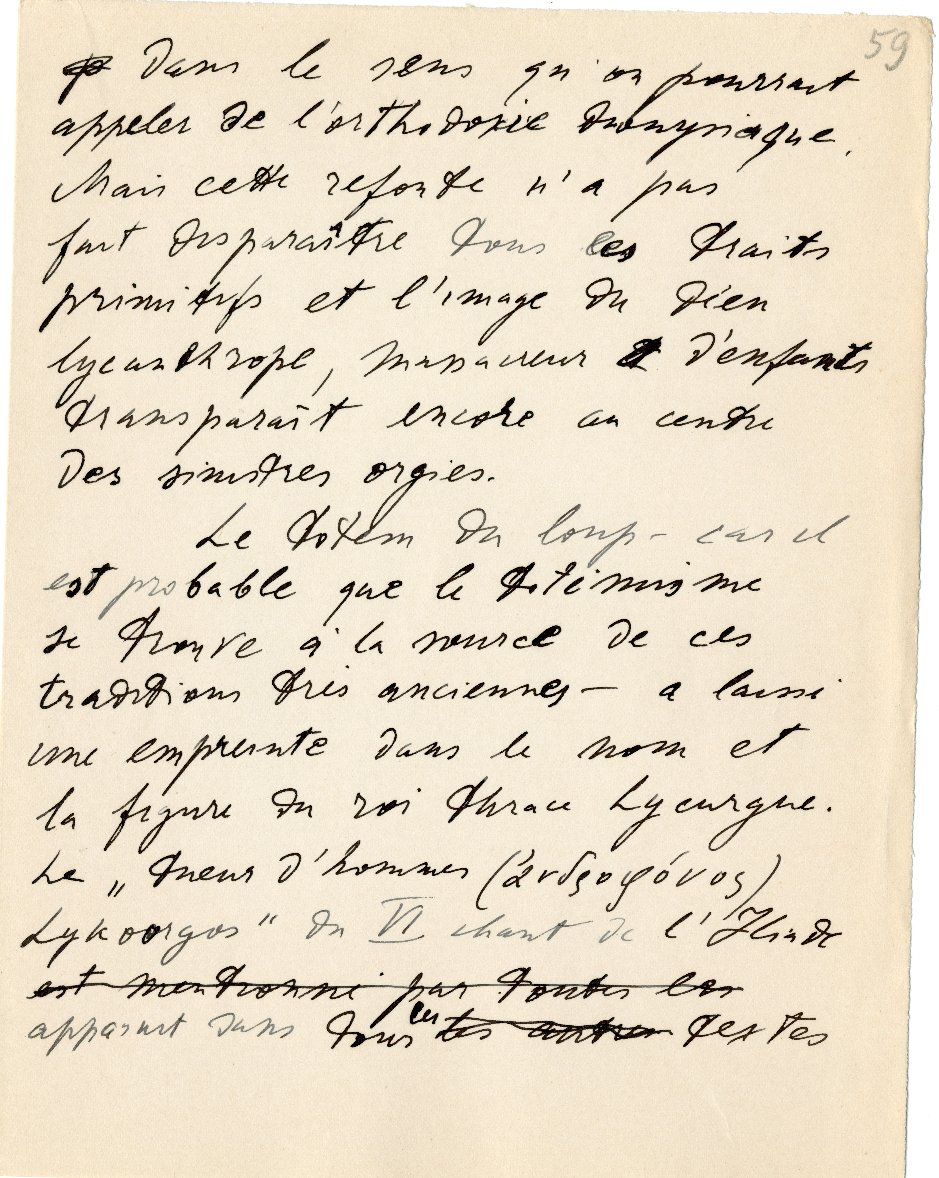 59
dans le sens qu'on pourrait
appeler de l'orthodoxie dionysiaque.
Mais cette refonte n'a pas
fait disparaître tous les traits
primitifs et l'image du dieu
lycanthrope, massacreur d'enfants
transparaît encore au centre
des sinistres orgies.
Le totem du loup – car il
est probable que le totémisme
se trouve à la source de ces
traditions très anciennes – a laissé
une empreinte dans le nom et
la figure du roi thrace Lycurgue.
Le „tueur d'hommes (ἀνδροφόνος)
Lykoorgos" du VI chant de l'Iliade
est mentionné par toutes les
apparaît dans tous les autres textes